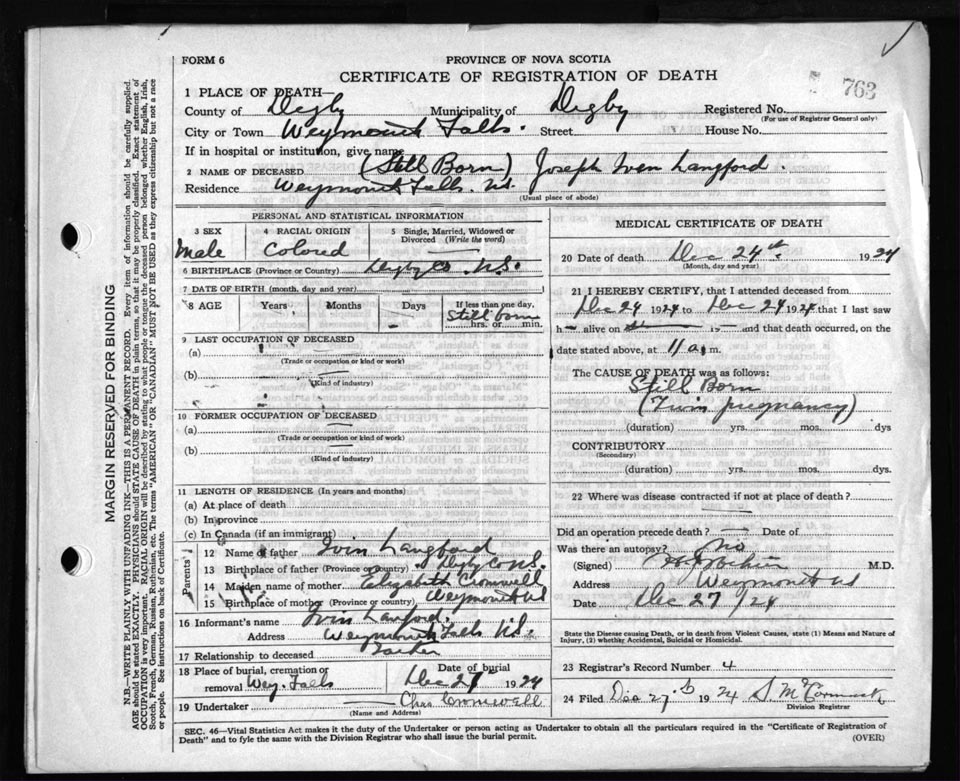 FORM 6
PROVINCE OF NOVA SCOTIA
CERTIFICATE OF REGISTRATION OF DEATH
763
1 PLACE OF DEATH—
County of Digby Municipality of Digby Registered No.
(For use of Registrar General only)
City or Town Weymouth Falls. Street House No.
If in hospital or institution, give name
2 NAME OF DECEASED (Still Born) Joseph Iven Langford.
Residence Weymouth Falls. N.S.
(Usual place of abode)
PERSONAL AND STATISTICAL INFORMATION
3 SEX 4 RACIAL ORIGIN 5 Single, Married, Widowed or Divorced (Write the word)
Male Colored
6 BIRTHPLACE (Province or Country) Digby Co N.S.
7 DATE OF BIRTH (month, day and year)
8 AGE Years Months Days If less than one day,
Still born
hrs. or min.
9 LAST OCCUPATION OF DECEASED
(a)
(Trade or occupation or kind or work)
(b)
(Kind of industry)
10 FORMER OCCUPATION OF DECEASED
(a)
(Trade or occupation or kind of work)
(b)
(Kind of Industry)
11 LENGTH OF RESIDENCE (In years and months)
(a) At place of death
(b) In province
(c) In Canada (if an immigrant)
Parents'
12 Name of father Ivin Langford
13 Birthplace of father (Province or country) Digby Co N.S.
14 Maiden name of mother Elizabeth Cromwell
15 Birthplace of mother (Province or country) Weymouth NS
16 Informant's name Ivin Langford.
Address Weymouth Falls N.S.
17 Relationship to deceased Father
18 Place of burial, cremation or removal Wey. Falls Date of burial Dec 27 1924
19 Undertaker Chas Cromwell
(Name and Address)
MEDICAL CERTIFICATE OF DEATH
20 Date of death Dec 24th. 1924
(Month, day and year)
21 I HEREBY CERTIFY, that I attended deceased from
Dec 24 1924 to Dec 24 1924 that I last saw
h— alive on 19— and that death occurred, on the
date stated above, at 11 a.m.
The CAUSE OF DEATH was as follows:
Still Born
(Twin pregnancy)
(duration) yrs. mos. dys
CONTRIBUTORY
(Secondary)
(duration) yrs. mos. dys.
22 Where was disease contracted if not at place of death?
Did an operation precede death? Date of
Was there an autopsy? No
(Signed) M.D.
Address Weymouth NS
Date Dec 27/24
State the Disease causing Death, or in death from Violent Causes, state (1) Means and Nature of
Injury, (2) whether Accidental, Suicidal or Homicidal.
23 Registrar's Record Number 4
24 Filed Dec 27 1924 S McCormick
Division Registrar
SEC. 46—Vital Statistics Act makes it the duty of the Undertaker or person acting as Undertaker to obtain all the particulars required in the "Certificate of Registration of
Death" and to fyle the same with the Division Registrar who shall issue the burial permit. (OVER)
MARGIN RESERVED FOR BINDING
N.B.—WRITE PLAINLY WITH UNFADING INK—THIS IS A PERMANENT RECORD. Every item of information should be carefully supplied.
AGE should be stated EXACTLY. PHYSICIANS should STATE CAUSE OF DEATH in plain terms, so that it may be properly classified. Exact statement of
OCCUPATION is very important. RACIAL ORIGIN will be described by stating to what people or tongue the deceased person belonged whether English, Irish,
Scotch, French, German, Russian, Ruthenian, etc. The terms "AMERICAN" OR "CANADIAN" MUST NOT BE USED as they express citizenship but not a race
or people. See instructions on back of Certificate.